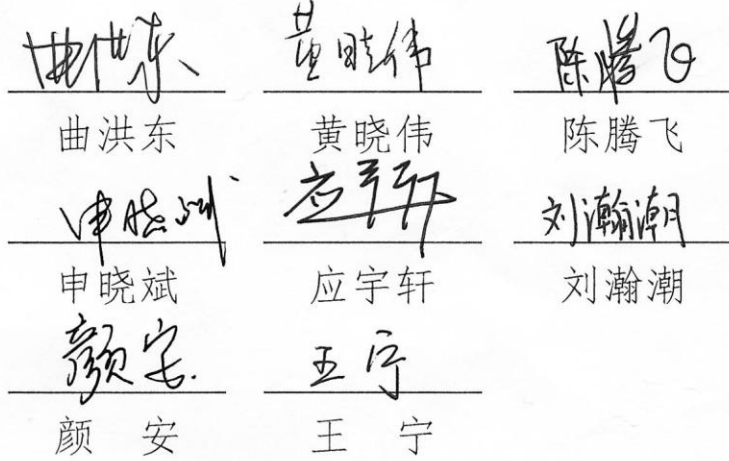 曲洪东 黄晓伟 陈腾飞
曲洪东 黄晓伟 陈腾飞
申晓斌 应宇轩 刘瀚潮
申晓斌 应宇轩 刘瀚潮
颜安 王宁
颜 安 王 宁